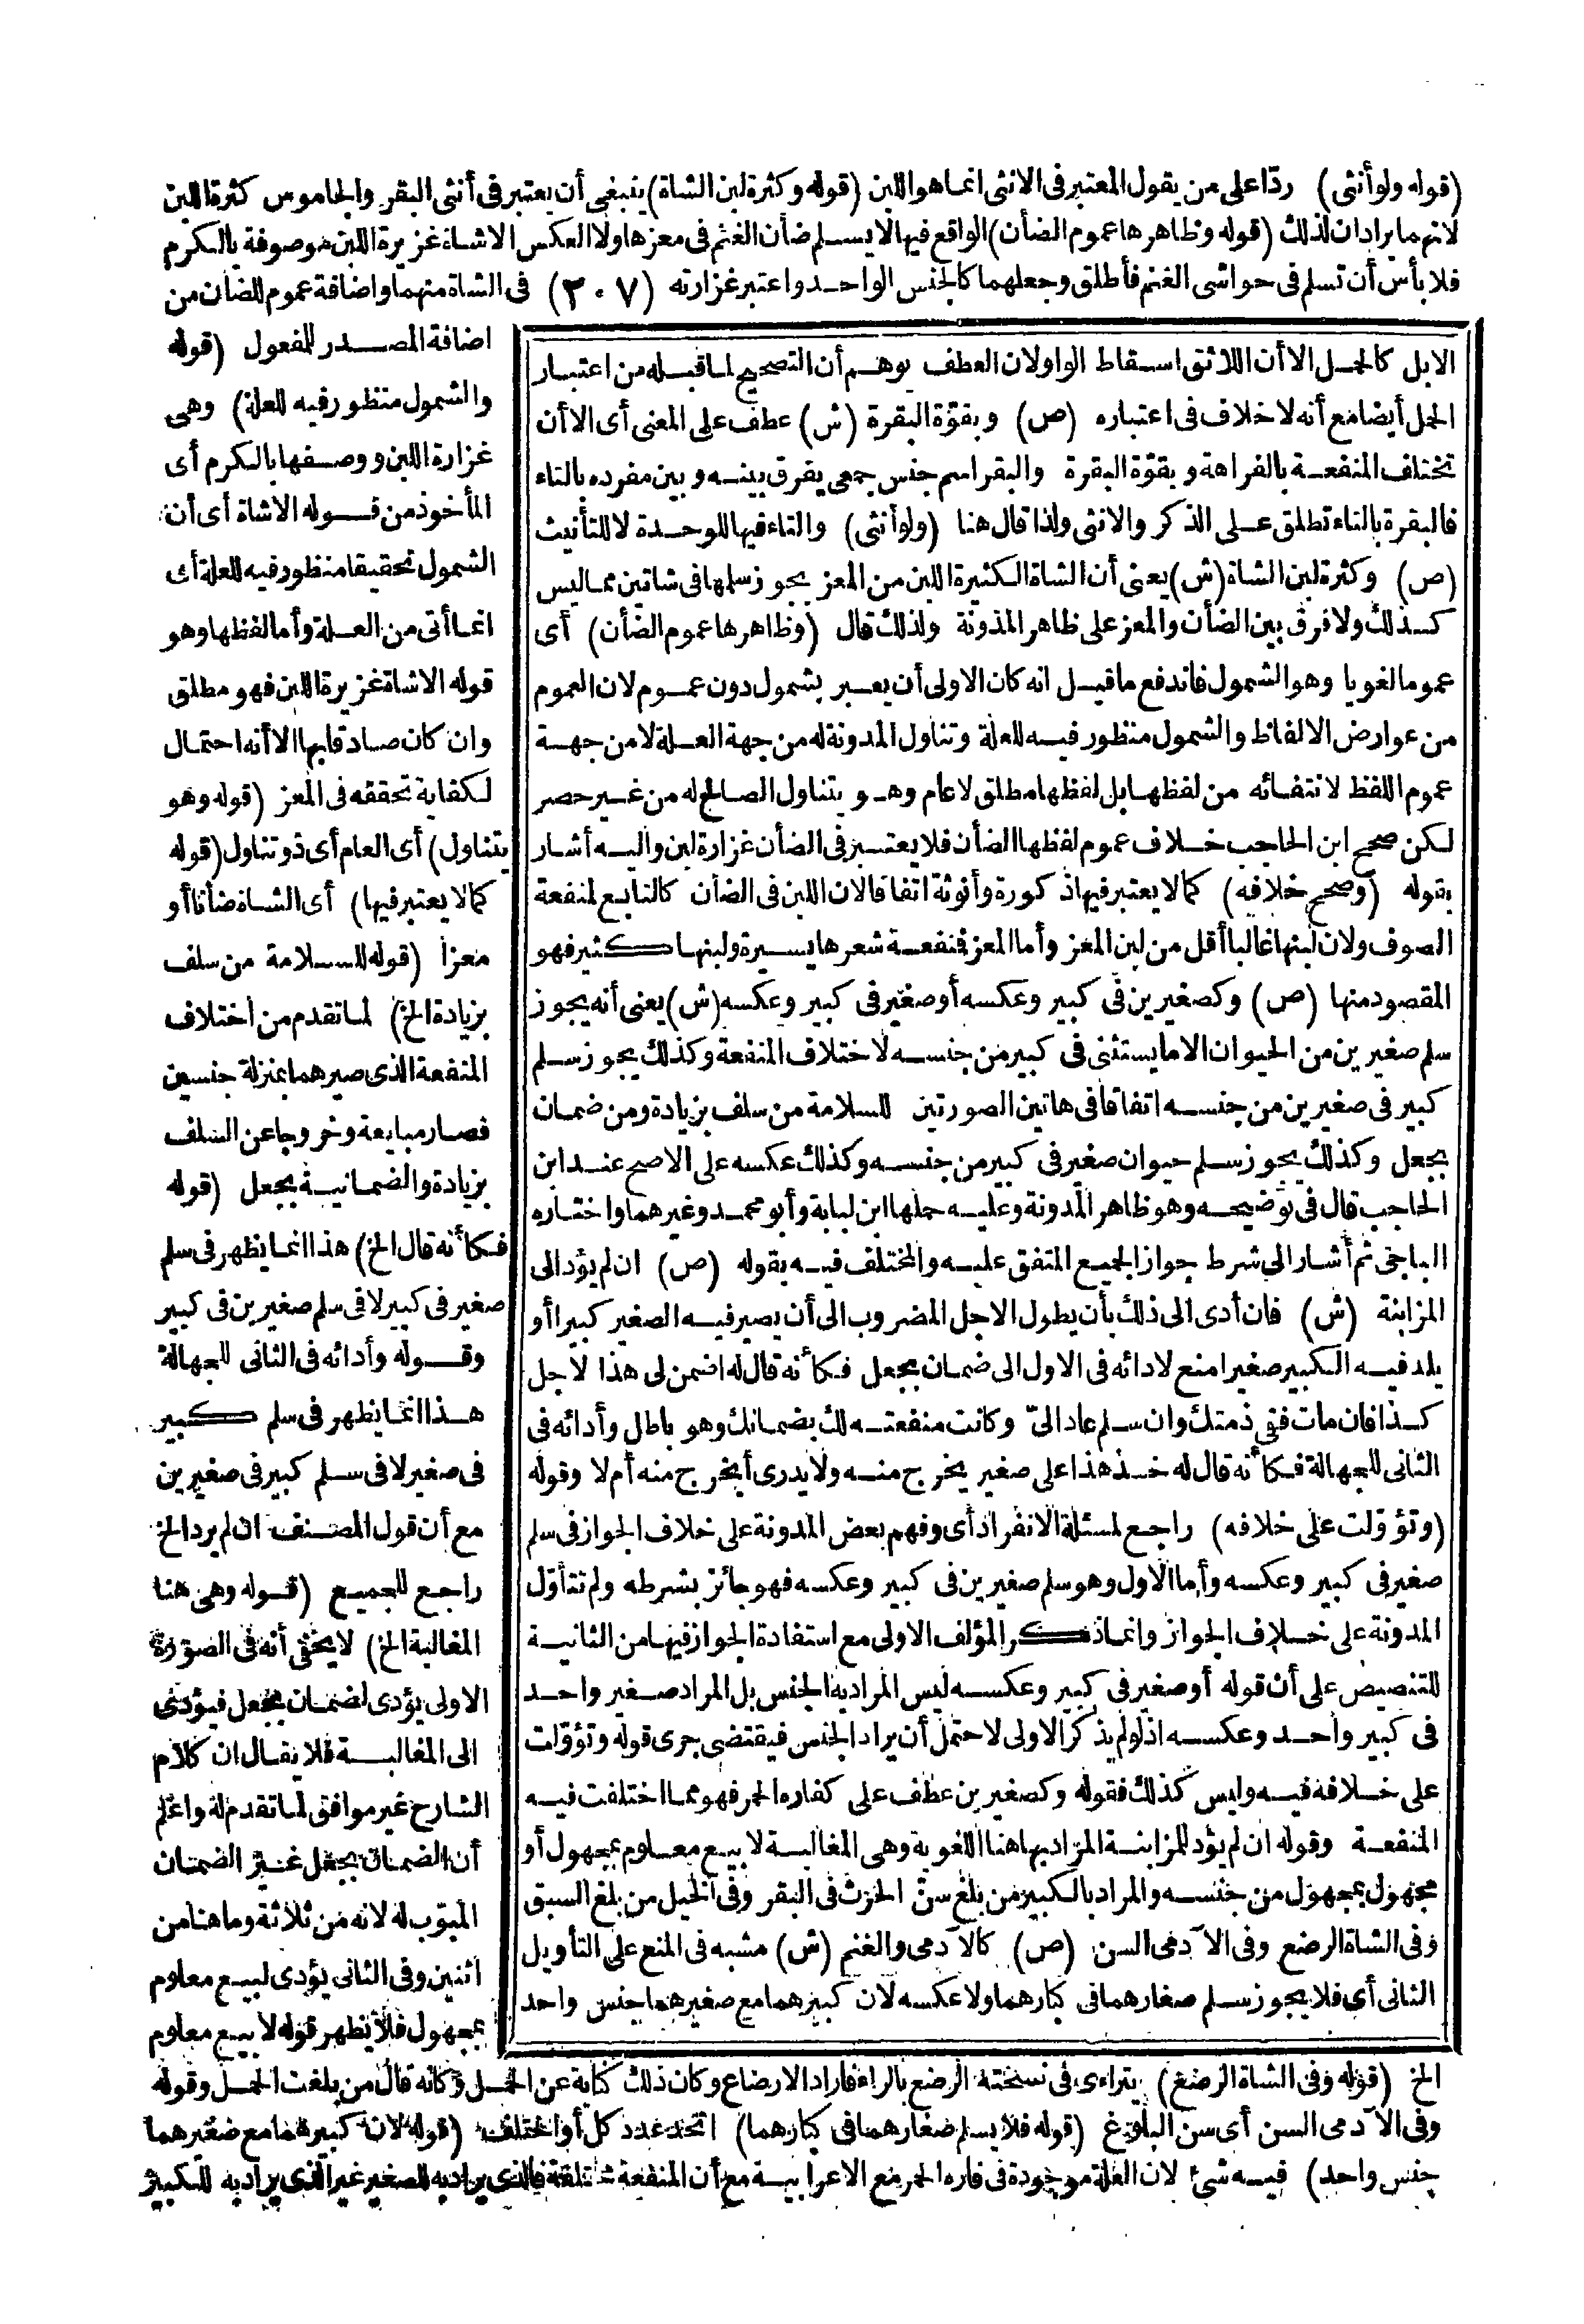 (قوله ولو أنثى) ردّا على من يقول المعتبر فى الانثى انما هو اللبن (قوله وكثرة لبن الشاة) ينبغى أن يعتبر فى أنثى البقر والجاموس كثرة اللبن
لانهما يرادان لذلك (قوله وظاهرها عموم الضأن) الواقع فيها لا يسلم ضأن الغنم فى معزها ولا العكس الا شاة غزيرة اللبن موصوفة بالكرم
فلا بأس أن تسلم فى حواشى الغنم فأطلق وجعلهما كالجنس الواحد واعتبر غزارته (٣٠٧) فى الشاة منهما واضافة عموم للضأن من
اضافة المصدر للمفعول (قوله
والشمول منظور فيه للعلة) وهى
غزارة اللبن ووصفها بالكرم أى
المأخوذ من قوله الا شاة أى أن
الشمول تحقيقا منظور فيه للعلة أى
انما أتى من العلة وأما لفظها وهو
قوله الا شاة غزيرة اللبن فهو مطلق
وان كان صادقا بها الا أنه احتمال
لكفاية تحققه فى المعز (قوله وهو
يتناول) أى العام أى ذو تناول (قوله
كما لا يعتبر فيها) أى الشاة ضأنا أو
معزا (قوله للسلامة من سلف
بزيادة الخ) لما تقدم من اختلاف
المنفعة الذى صيرهما بمنزلة جنسين
فصار مبايعة وخروجا عن السلف
بزيادة والضمانية بجعل (قوله
فكأنه قال الخ) هذا انما يظهر فى سلم
صغير فى كبير لا فى سلم صغيرين فى كبير
وقوله وأدائه فى الثانى للجهالة
هذا انما يظهر فى سلم كبير
فى صغير لا فى سلم كبير فى صغيرين
مع أن قول المصنف ان لم يرد الخ
راجع للجميع (قوله وهى هنا
المغالبة الخ) لا يخفى أنه فى الصورة
الاولى يؤدى لضمان بجعل فيؤدى
الى المغالبة فلا يقال ان كلام
الشارح غير موافق لما تقدم له واعلم
أن الضمان بجعل غير الضمان
المبوّب له لانه من ثلاثة وما هنا من
اثنين وفى الثانى يؤدى لبيع معلوم
بمجهول فلا يظهر قوله لا بيع معلوم
الابل كالجمل الا أن اللائق اسقاط الواو لان العطف يوهم أن التصحيح لما قبله من اعتبار
الجمل أيضا مع أنه لا خلاف فى اعتباره (ص) وبقوّة البقرة (ش) عطف على المعنى أى الا أن
تختلف المنفعة بالفراهة وبقوّة البقرة والبقر اسم جنس جمعى يفرق بينه وبين مفرده بالتاء
فالبقرة بالتاء تطلق على الذكر والانثى ولذا قال هنا (ولو أنثى) والتاء فيها للوحدة لا للتأنيث
(ص) وكثرة لبن الشاة (ش) يعنى أن الشاة الكثيرة اللبن من المعز يجوز سلمها فى شاتين مما ليس
كذلك ولا فرق بين الضأن والمعز على ظاهر المدوّنة ولذلك قال (وظاهرها عموم الضأن) أى
عموما لغويا وهو الشمول فاندفع ما قيل انه كان الاولى أن يعبر بشمول دون عموم لان العموم
من عوارض الالفاظ والشمول منظور فيه للعلة وتناول المدونة له من جهة العلة لا من جهة
عموم اللفظ لانتفائه من لفظها بل لفظها مطلق لا عام وهو يتناول الصالح له من غير حصر
لكن صحح ابن الحاجب خلاف عموم لفظها الضأن فلا يعتبر فى الضأن غزارة لبن واليه أشار
بقوله (وصحح خلافه) كما لا يعتبر فيها ذكورة وأنوثة اتفاقا لان اللبن فى الضأن كالتابع لمنفعة
الصوف ولان لبنها غالبا أقل من لبن المعز وأما المعز فمنفعة شعرها يسيرة ولبنها كثير فهو
المقصود منها (ص) وكصغيرين فى كبير وعكسه أو صغير فى كبير وعكسه (ش) يعنى أنه يجوز
سلم صغيرين من الحيوان الا ما يستثنى فى كبير من جنسه لاختلاف المنفعة وكذلك يجوز سلم
كبير فى صغيرين من جنسه اتفاقا فى هاتين الصورتين للسلامة من سلف بزيادة ومن ضمان
بجعل وكذلك يجوز سلم حيوان صغير فى كبير من جنسه وكذلك عكسه على الاصح عند ابن
الحاجب قال فى توضيحه وهو ظاهر المدونة وعليه حملها ابن لبابة وأبو محمد وغيرهما واختاره
الباجى ثم أشار الى شرط جواز الجميع المتفق عليه والمختلف فيه بقوله (ص) ان لم يؤد الى
المزابنة (ش) فان أدى الى ذلك بأن يطول الاجل المضروب الى أن يصير فيه الصغير كبيرا أو
يلد فيه الكبير صغيرا منع لادائه فى الاول الى ضمان بجعل فكأنه قال له اضمن لى هذا لاجل
كذا فان مات ففى ذمتك وان سلم عاد الىّ وكانت منفعته لك بضمانك وهو باطل وأدائه فى
الثانى للجهالة فكأنه قال له خذ هذا على صغير يخرج منه ولا يدرى أيخرج منه أم لا وقوله
(وتؤوّلت على خلافه) راجع لمسئلة الانفراد أى وفهم بعض المدونة على خلاف الجواز فى سلم
صغير فى كبير وعكسه وأما الاول وهو سلم صغيرين فى كبير وعكسه فهو جائز بشرطه ولم تتأوّل
المدونة على خلاف الجواز وانما ذكر المؤلف الاولى مع استفادة الجواز فيها من الثانية
للتنصيص على أن قوله أو صغير فى كبير وعكسه ليس المراد به الجنس بل المراد صغير واحد
فى كبير واحد وعكسه اذ لو لم يذكر الاولى لاحتمل أن يراد الجنس فيقتضى جرى قوله وتؤوّلت
على خلافه فيه وليس كذلك فقوله وكصغيرين عطف على كفاره الحمر فهو مما اختلفت فيه
المنفعة وقوله ان لم يؤد للمزابنة المراد بها هنا اللغوية وهى المغالبة لا بيع معلوم بمجهول أو
مجهول بمجهول من جنسه والمراد بالكبير من بلغ سنّ الحرث فى البقر وفى الخيل من بلغ السبق
وفى الشاة الرضع وفى الآدمى السن (ص) كالآدمى والغنم (ش) مشبه فى المنع على التأويل
الثانى أى فلا يجوز سلم صغارهما فى كبارهما ولا عكسه لان كبيرهما مع صغيرهما جنس واحد
الخ (قوله وفى الشاة الرضع) يتراءى فى نسخته الرضع بالراء فاراد الارضاع وكان ذلك كناية عن الحمل وكانه قال من بلغت الحمل وقوله
وفى الآدمى السن أى سن البلوغ (قوله فلا يسلم صغارهما فى كبارهما) اتحد عدد كل أو اختلف (قوله لان كبيرهما مع صغيرهما
جنس واحد) فيه شئ لان العلة موجودة فى فاره الحمر مع الاعرابية مع أن المنفعة مختلفة فالذى يراد به الصغير غير الذى يراد به الكبير